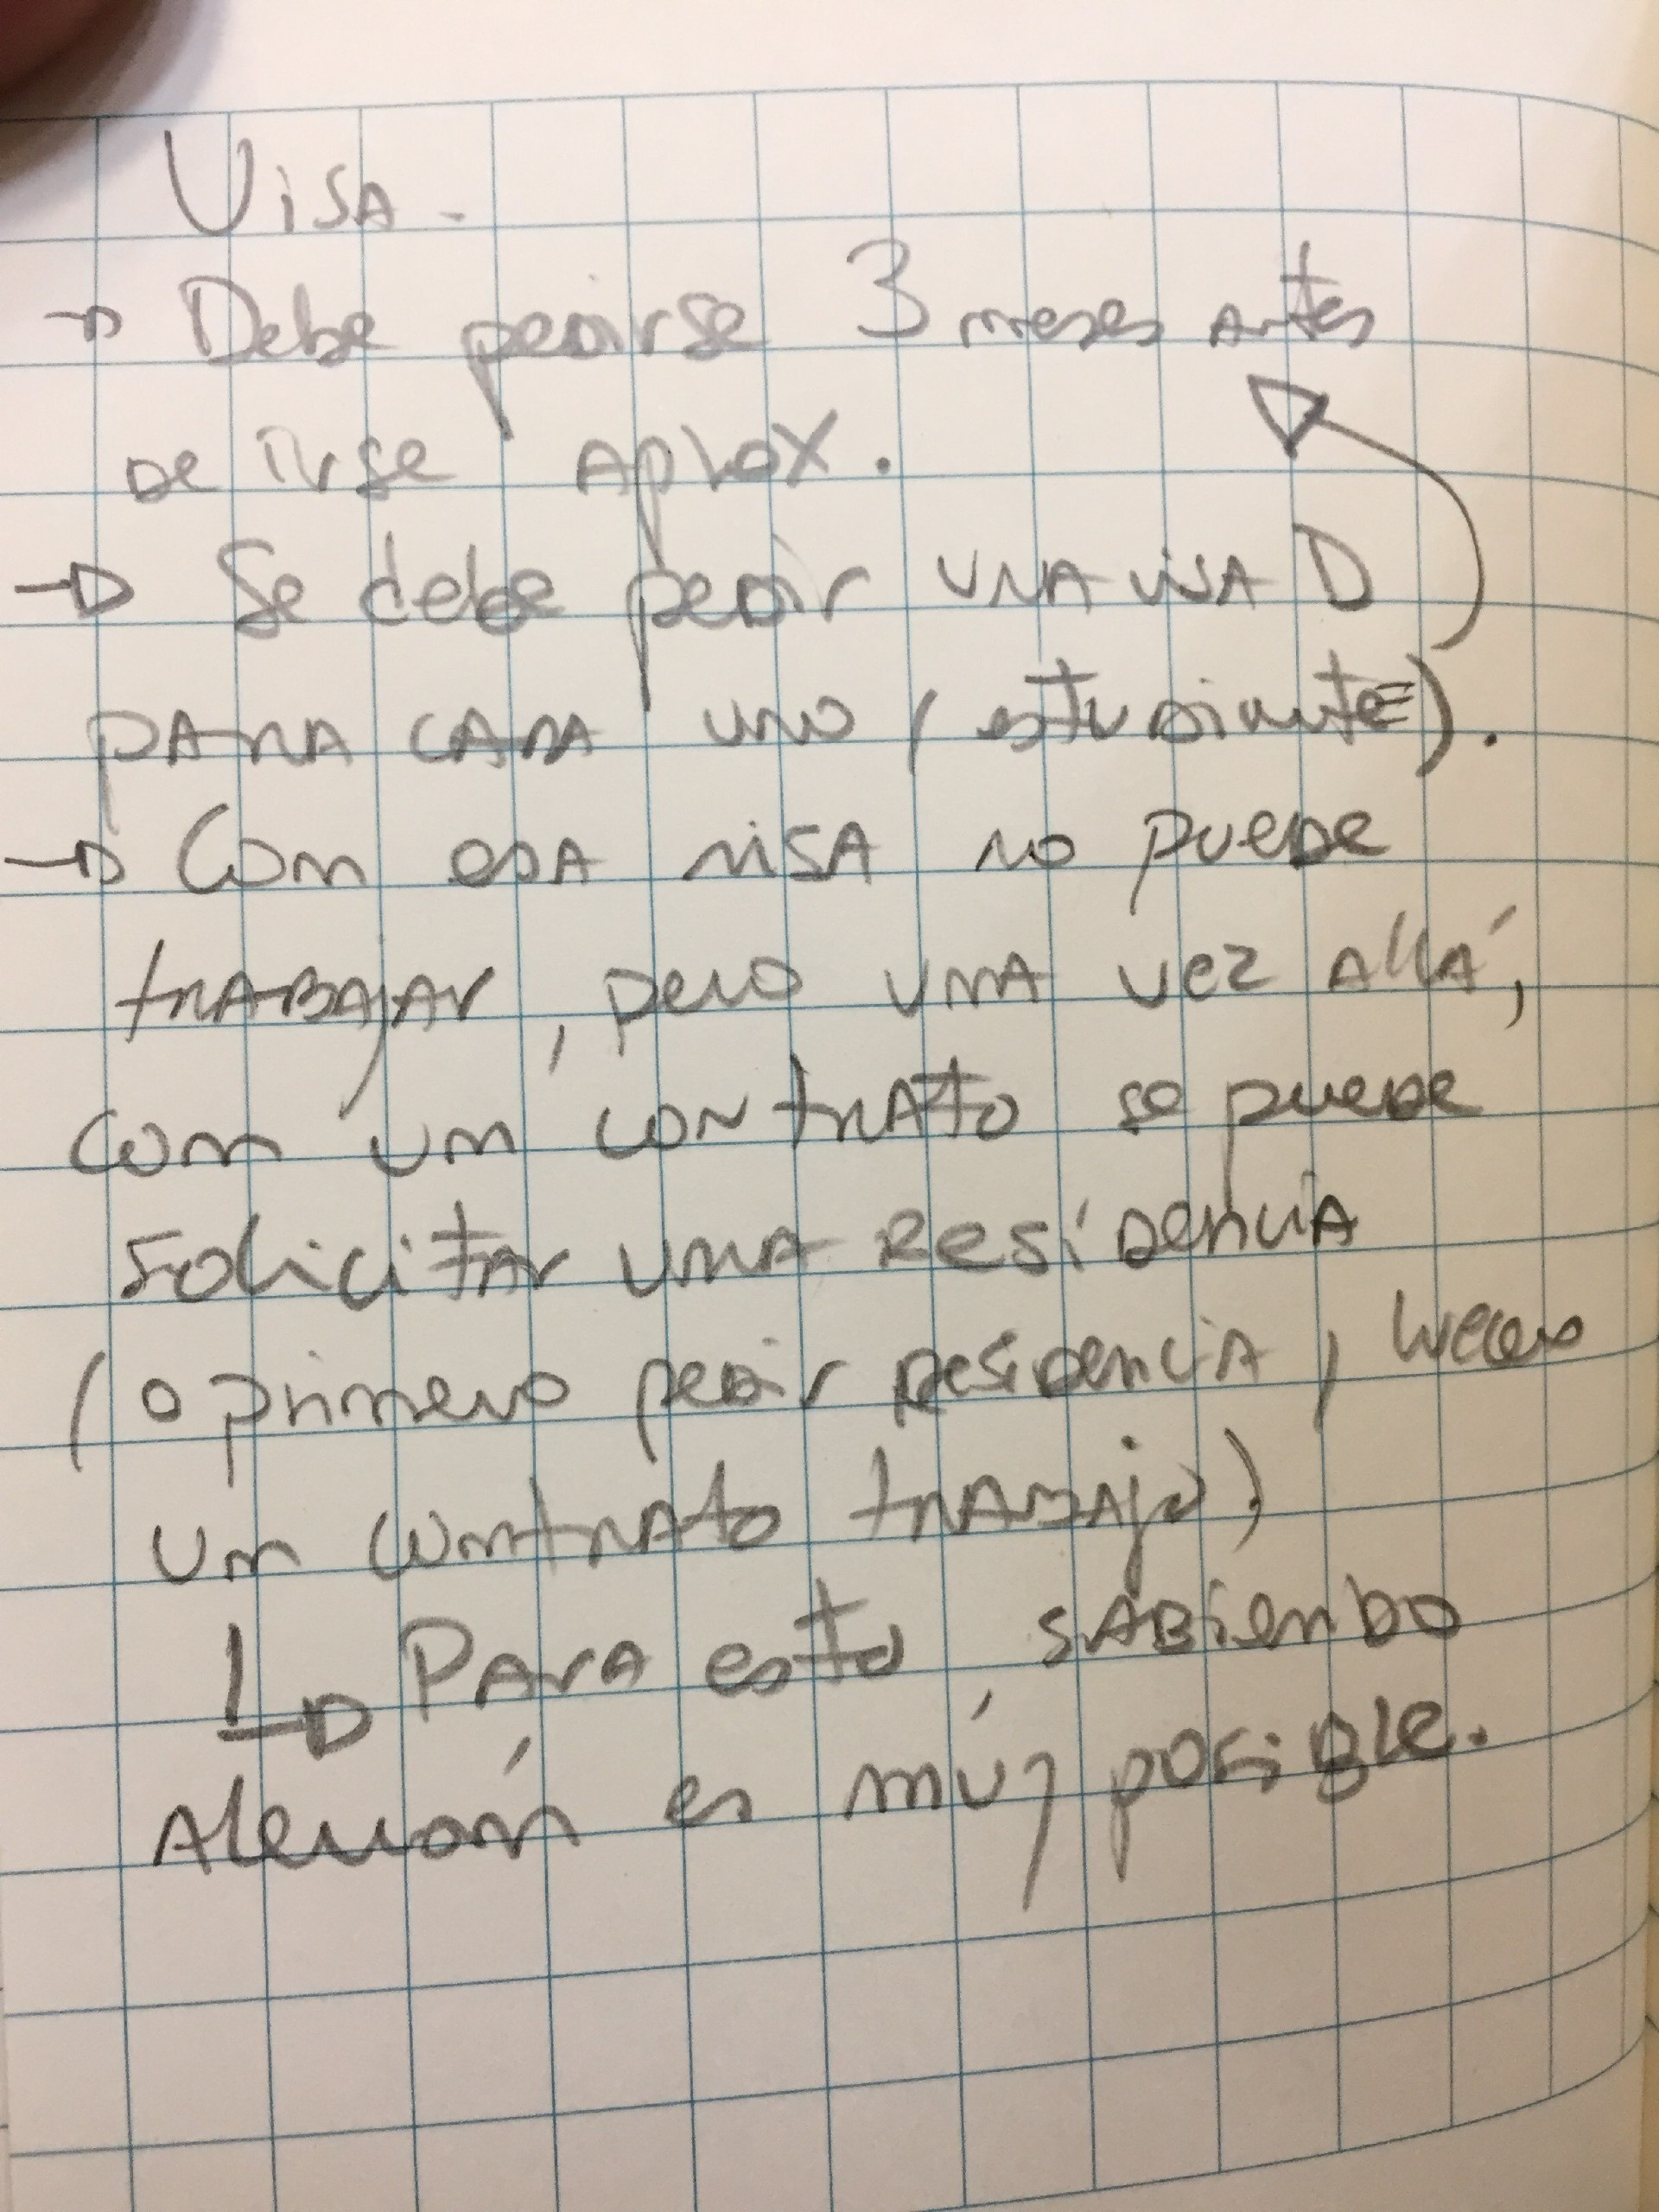 Visa.
→ Debe pedirse 3 meses antes
de irse aprox.
→ Se debe pedir una visa D
para cada uno (estudiante).
→ Con esa visa no puede
trabajar, pero una vez allá,
con un contrato se puede
solicitar una residencia
(o primero pedir residencia, luego
un contrato trabajo)
↳ Para esto sabiendo
Alemán es múy posible.